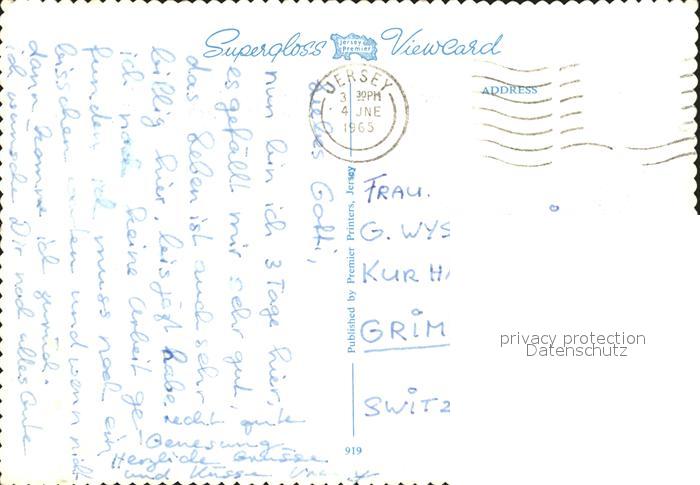 Supergloss Jersey Premier Viewcard
JERSEY
3 30PM
4 JNE
1965
ADDRESS
Liebes Gotti,
nun bin ich 3 Tage hier,
es gefällt mir sehr gut,
das Leben ist auch sehr
billig hier, bis jetzt habe
ich noch keine Arbeit ge-
funden ich muss noch ein
bisschen warten und wenn nicht
dann komme ich zurück.
ich wünsche Dir noch alles Gute
recht gute
Genesung
Herzliche Grüsse
und Küsse
Published by Premier Printers, Jersey
FRAU.
G. WYS
KUR HA
GRIM
SWITZ
919
privacy protection
Datenschutz